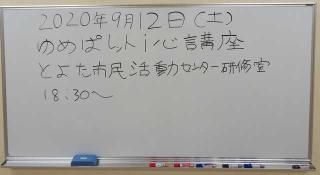 2020年9月12日(土)
ゆめぱしんしi心言講座
とよた市民活動センター研修室
18:30～